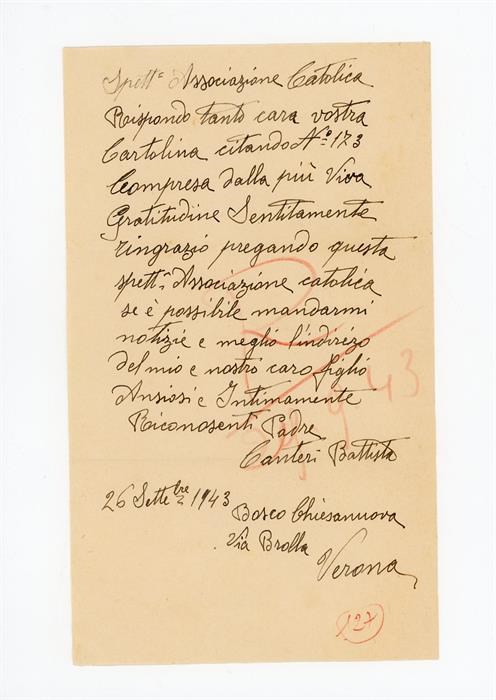 Spett.e Associazione Catolica
Rispondo tanto cara vostra
Cartolina citando No= 173
Compresa dalla più Viva
Gratitudine Sentitamente
ringrazio pregando questa
spett.e Associazione catolica
se è possibile mandarmi
notizie e meglio l'indirizo
del mio e nostro caro figlio
Ansiosi e Intimamente
Riconosenti Padre
Canteri Battista
26 Settebre 1943
Bosco Chiesanuova
Via Brolla
Verona
9 43
127